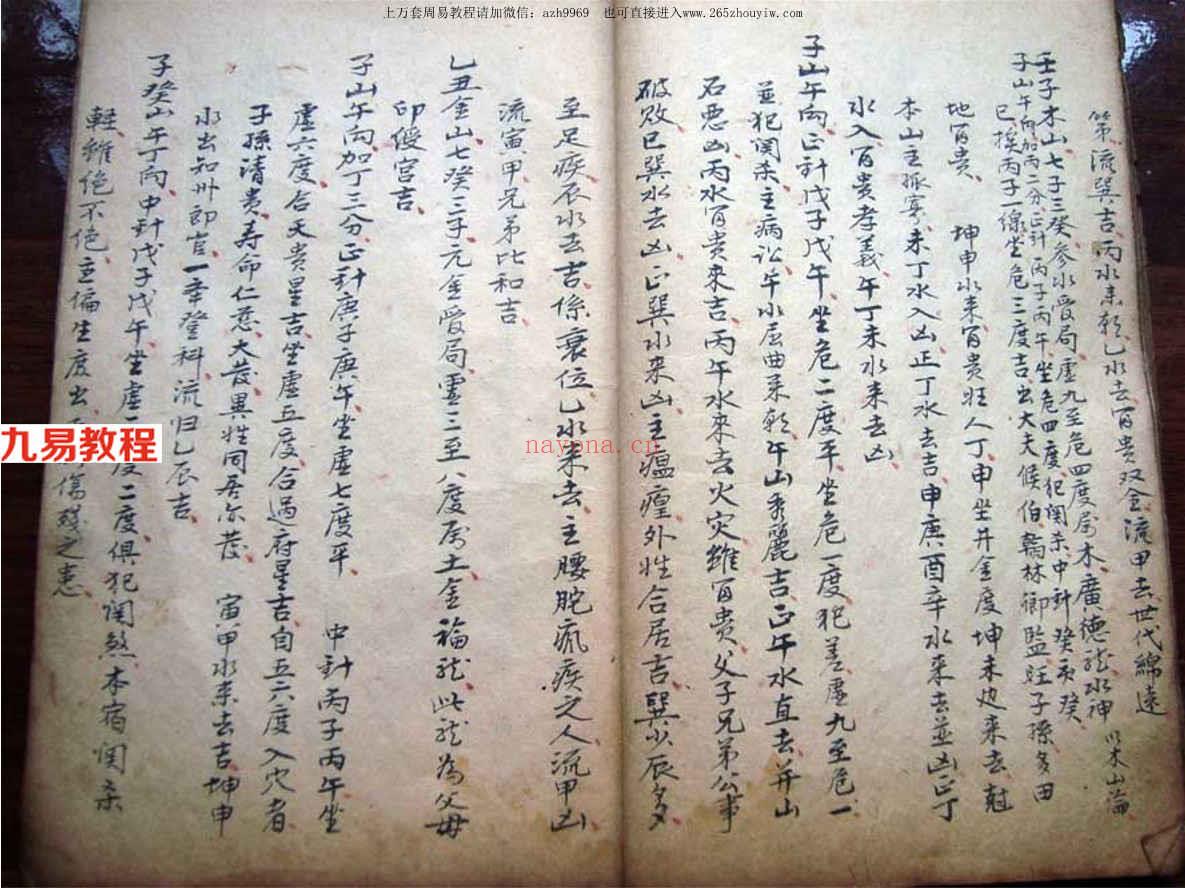 上万套周易教程请加微信：azh9969　也可直接进入www.265zhouyiw.com
第流巽吉丙水来乾乙水去百貴双金流甲去世代綿遠
壬子木山七子三癸参水受局虚九至危四度属木廣德龙水神以木山論
子山午向加丙二分正針丙子丙午坐危四度犯関杀中針癸亥癸
巳挨丙子一線坐危三度吉出大夫候伯翰林卿监妊子孫多田
地百貴　坤申水来百貴旺人丁申坐井金度坤未边来去尅
本山主孤寡未丁水入凶正丁水去吉申庚酉辛水来去並凶正丁
水入百貴孝義午丁未水来去凶
子山午向正針戊子戊午坐危二度平坐危一度犯差虚九至危一
並犯関杀主病訟午水屈曲来乾午山秀麗吉正午水直去并山
石悪凶丙水百貴来吉丙午水來去火灾雖百貴父子兄弟公事
破敗巳巽水去凶正巽水来凶主瘟瘟外性合居吉巽少辰多
至足疾辰水去吉係衰位乙水来去主腰脱瘋疾之人流甲凶
流寅甲兄弟比和吉
乙丑金山七癸三子元金受局虚二至八度属土金福龙此龙為父母
印绶宫吉
子山午向加丁三分正針庚子庚午坐虚七度平　中針丙子丙午坐
虚六度合天貴星吉坐虚五度合過府星吉自五六度入穴者
子孫清貴寿命仁慈大發異姓同居亦發　寅甲水来去吉坤申
水出知州郎官一牽登科流归乙辰吉
子癸山午丁向中針戊子戊午坐虚一度二度俱犯関煞本宿関杀
軽雖絶不绝主偏生度出傷殘之患
九易教程
nayona.cn